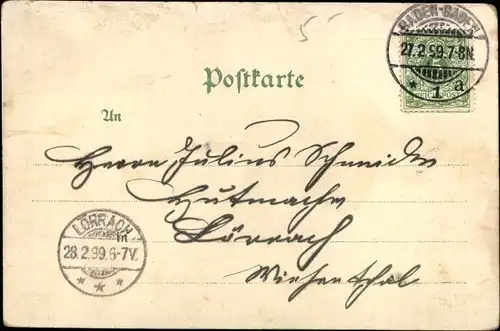 5
BADEN-BADEN
27.2.99.7-8N.
* 1 a
REICHSPOST
Postkarte
An
Herrn Julius Schneider
Hutmacher
Lörrach
Wiesenthal
LÖRRACH
28.2.99.6-7V.
* * *